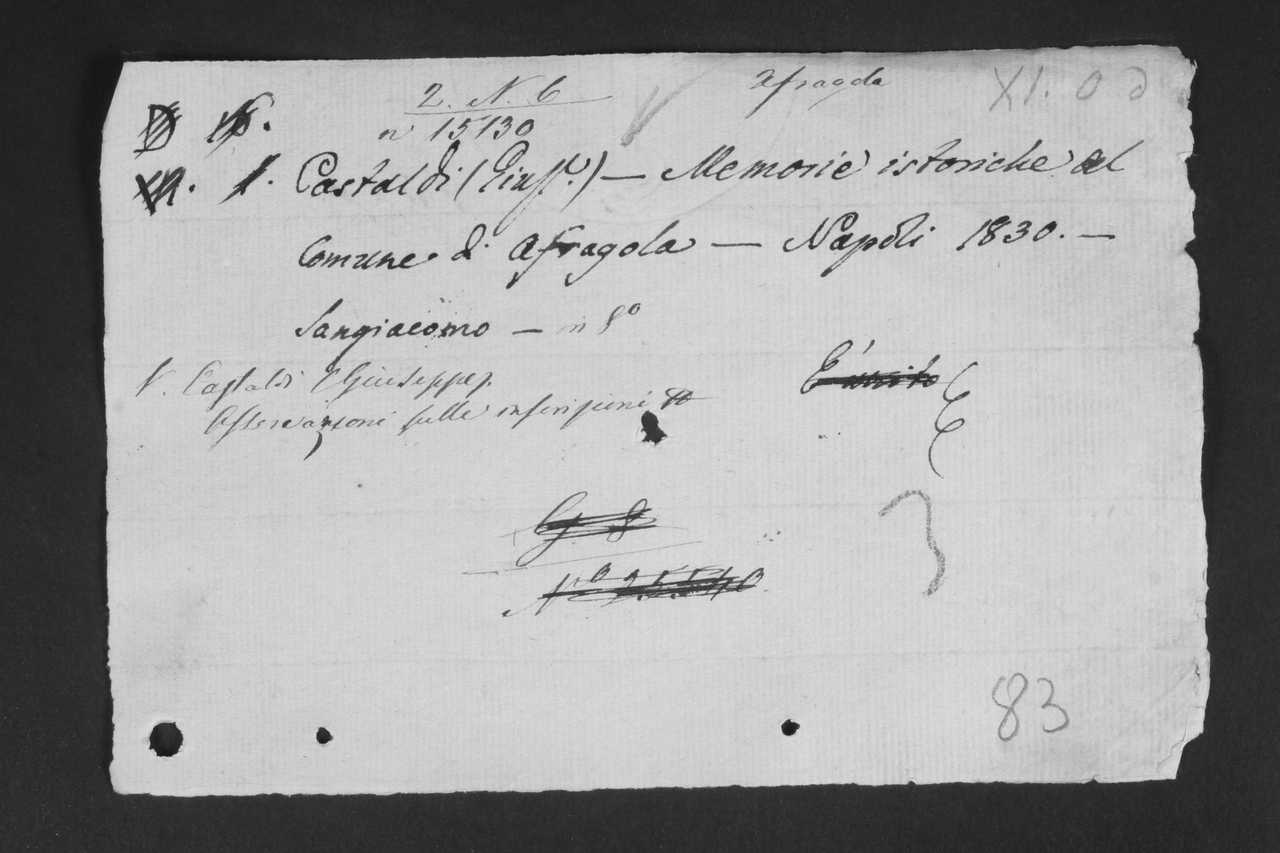 2. N. 6
Afragola
XI.
n 15130
Castaldi (Giuse.) — Memorie istoriche del
Comune di Afragola — Napoli 1830. —
Sangiacomo — in 8°
V. Castaldi Giuseppe.
Osservazioni sulle inscrizioni
È unito
G. 8
N° 25540
83